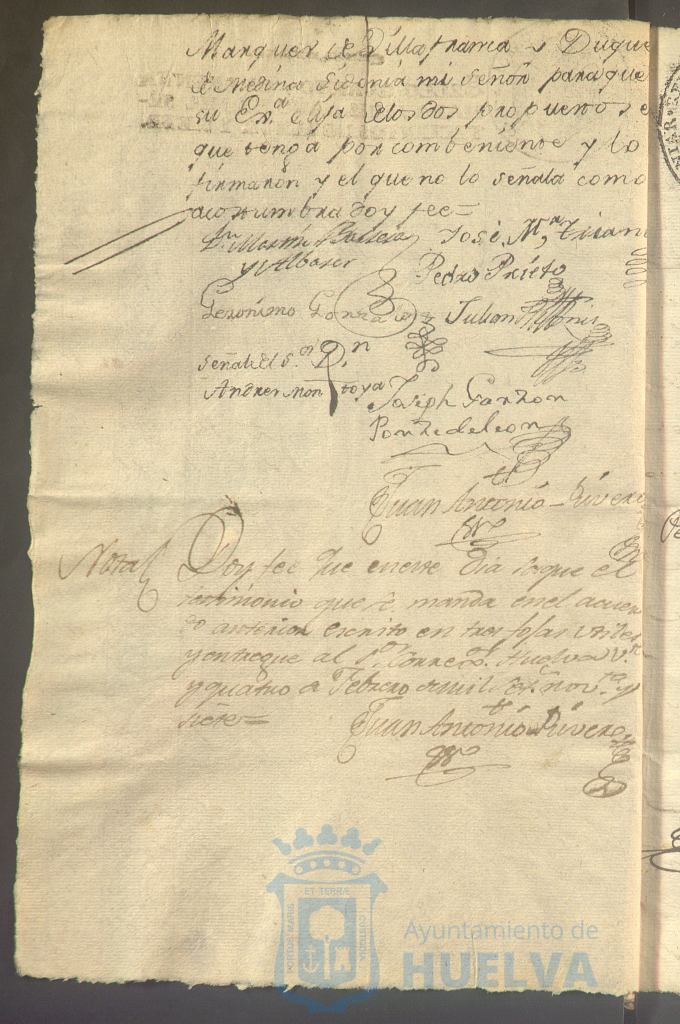 Marques de Villafranca y Duque
de Medina Sidonia mi señor para que
su Exª elija delos dos propuestos el
que tenga por combeniente y lo
firmaron y el que no lo señala como
acostumbra doy fee=
Dn. Martin Barrera José Mª, Tisan
y Albarer Pedro Prieto
Geronimo Gonzalez Julian
Señal del Sor. Dn.
Andres Montoya Joseph Garzon
Ponze de leon
Juan Antonio Rivera
Nota Doy fee que en este dia saque el
testimonio que se manda en el acuer
do anterior escrito en tres fojas utiles
y entregue al Sor. Corregor. Huelva
y quatro de Febrero de mil setts. novta. y
siete=
Juan Antonio Rivera
ET TERRÆ
PORTUS MARIS
CUSTODIA
Ayuntamiento de
HUELVA